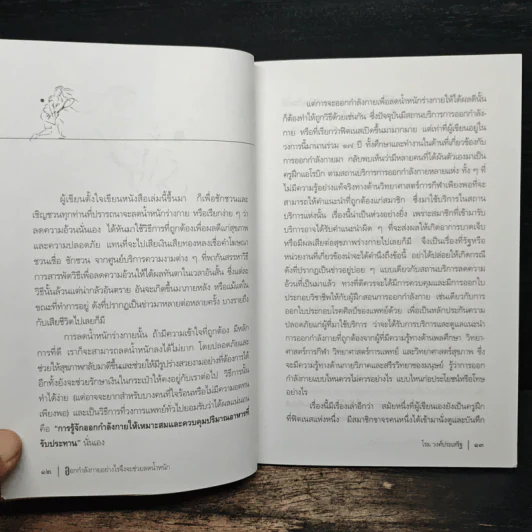 ผู้เขียนตั้งใจเขียนหนังสือเล่มนี้ขึ้นมา ก็เพื่อชักชวนและ
เชิญชวนทุกท่านที่ปรารถนาจะลดน้ำหนักร่างกาย หรือเรียกง่าย ๆ ว่า
ลดความอ้วนนั่นเอง ได้หันมาใช้วิธีการที่ถูกต้องเพื่อผลดีแก่สุขภาพ
และความปลอดภัย แทนที่จะไปเสียเงินเสียทองหลงเชื่อคำโฆษณา
ชวนเชื่อ ชักชวน จากศูนย์บริการความงามต่าง ๆ ที่พากันสรรหาวิธี
การสารพัดวิธีเพื่อลดความอ้วนให้ได้ผลทันตาในเวลาอันสั้น ซึ่งแต่ละ
วิธีนั้นล้วนแต่น่ากลัวอันตราย อันจะเกิดขึ้นมาภายหลัง หรือแม้แต่ใน
ขณะที่ทำการอยู่ ดังที่ปรากฏเป็นข่าวมาหลายต่อหลายครั้ง บางรายถึง
กับเสียชีวิตไปเลยก็มี
การลดน้ำหนักร่างกายนั้น ถ้ามีความเข้าใจที่ถูกต้อง มีหลัก
การที่ดี เราก็จะสามารถลดน้ำหนักลงได้ไม่ยาก โดยปลอดภัยและ
ช่วยให้สุขภาพกลับมาดีขึ้นและช่วยให้มีรูปร่างสวยงามอย่างที่ต้องการได้
อีกทั้งยังจะช่วยรักษาเงินในกระเป๋าให้คงอยู่กับเราต่อไป วิธีการนั้น
ทำได้ง่าย (แต่อาจจะยากสำหรับบางคนที่ใจร้อนหรือไม่มีความอดทน
เพียงพอ) และเป็นวิธีการที่วงการแพทย์ทั่วไปยอมรับว่าได้ผลแน่นอน
คือ "การรู้จักออกกำลังกายให้เหมาะสมและควบคุมปริมาณอาหารที่
รับประทาน" นั่นเอง
๑๒ | ออกกำลังกายอย่างไรจึงจะช่วยลดน้ำหนัก
แต่การจะออกกำลังกายเพื่อลดน้ำหนักร่างกายให้ได้ผลดีนั้น
ก็ต้องทำให้ถูกวิธีด้วยเช่นกัน ซึ่งปัจจุบันมีสถานบริการการออกกำลัง-
กาย หรือที่เรียกว่าฟิตเนสเปิดขึ้นมามากมาย แต่เท่าที่ผู้เขียนอยู่ใน
วงการนี้มานานร่วม ๑๗ ปี ทั้งศึกษาและทำงานในด้านที่เกี่ยวข้องกับ
การออกกำลังกายมา กลับพบเห็นว่ามีหลายคนที่ได้ผันตัวเองมาเป็น
ครูฝึกแอโรบิก ตามสถานบริการการออกกำลังกายหลายแห่ง ทั้ง ๆ ที่
ไม่มีความรู้อย่างแท้จริงทางด้านวิทยาศาสตร์การกีฬาเพียงพอที่จะ
สามารถให้คำแนะนำที่ถูกต้องแก่สมาชิก ซึ่งมาใช้บริการในสถาน
บริการแห่งนั้น เรื่องนี้น่าเป็นห่วงอย่างยิ่ง เพราะสมาชิกที่เข้ามารับ
บริการอาจได้รับคำแนะนำผิด ๆ ที่จะส่งผลให้เกิดอาการบาดเจ็บ
หรือมีผลเสียต่อสุขภาพร่างกายไปเลยก็มี จึงเป็นเรื่องที่รัฐหรือ
หน่วยงานที่เกี่ยวข้องน่าจะได้คำนึงถึงข้อนี้ อย่าได้ปล่อยให้เกิดกรณี
ดังที่ปรากฏเป็นข่าวอยู่บ่อย ๆ แบบเดียวกับสถานบริการลดความ
อ้วนที่เป็นมาแล้ว ทางที่ดีควรจะได้มีการควบคุมและมีการออกใบ
ประกอบวิชาชีพให้กับผู้ฝึกสอนการออกกำลังกาย เช่นเดียวกับการ
ออกใบประกอบโรคศิลป์ของแพทย์ด้วย เพื่อเป็นหลักประกันความ
ปลอดภัยแก่ผู้ที่มาใช้บริการ ว่าจะได้รับการบริการและดูแลแนะนำ
การออกกำลังกายที่ถูกต้องจากผู้ที่มีความรู้ทางด้านพลศึกษา วิทยา-
ศาสตร์การกีฬา วิทยาศาสตร์การแพทย์ และวิทยาศาสตร์สุขภาพ ซึ่ง
จะมีความรู้ทางด้านกายวิภาคและสรีรวิทยาของมนุษย์ รู้ว่าการออก
กำลังกายแบบไหนควรไม่ควรอย่างไร แบบไหนก่อประโยชน์หรือโทษ
อย่างไร
เรื่องนี้มีเรื่องเล่าอีกว่า สมัยหนึ่งที่ผู้เขียนเองยังเป็นครูฝึก
ที่ฟิตเนสแห่งหนึ่ง มีสมาชิกชาวครอบหนึ่งได้เข้ามานั่งดูและบันทึก
โรม วงศ์ประเสริฐ | ๑๓